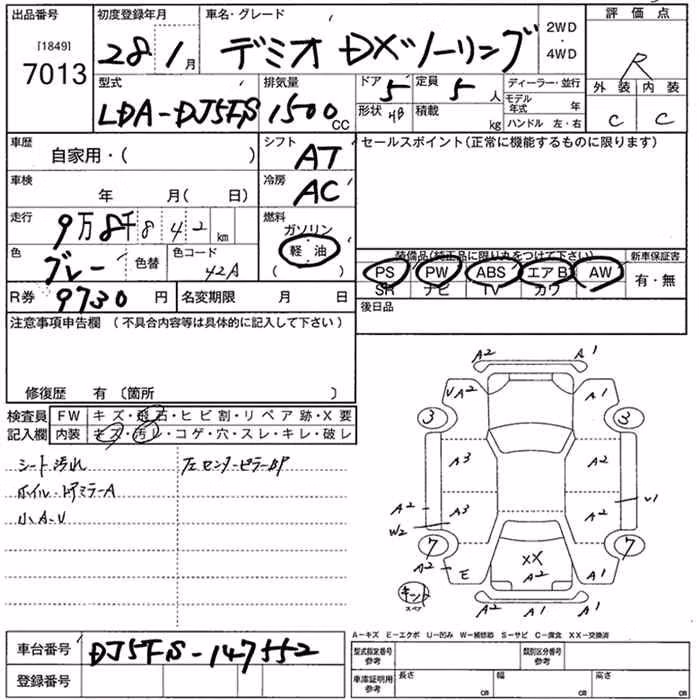 出品番号 初度登録年月 車名・グレード 評価点
[1849]
7013
28 1月 デミオ DXツーリング 2WD・4WD R
型式 排気量 ドア 定員 ディーラー・並行 外装 内装
LDA-DJ5FS 1500cc 5 5人 モデル年式 年 C C
形状 HB 積載 kg ハンドル 左・右
車歴 シフト セールスポイント(正常に機能するものに限ります)
自家用・( ) AT
車検 冷房
年 月( 日) AC
走行 燃料
9万8千842km ガソリン
軽・油
( )
色 色替 色コード
グレー 42A
装備品(純正品に限り丸をつけて下さい) 新車保証書
PS PW ABS エアB AW 有・無
SR ナビ TV カワ
R券 9730円 名変期限 月 日 後日品
注意事項申告欄 (不具合内容等は具体的に記入して下さい)
修復歴 有 〔箇所 〕
検査員 FW キズ・飛石・ヒビ割・リペア跡・X要
記入欄 内装 キズ・汚レ・コゲ・穴・スレ・キレ・破レ
シート汚れ 左センターピラーBP
ホイル・ドアミラーA
小A・U
A2 A1
UA2 A1
3 3
A3 A2
A2 A3 A2 U1
W2
7 7
A2 E XX A2 A1
キント
スペア
A2 A1 A1
A-キズ E-エクボ U-凹み W-補修跡 S-サビ C-腐食 XX-交換済
車台番号 DJ5FS-147552
型式指定番号 参考 類別区分番号 参考
登録番号
車庫証明用 参考 長さ cm 幅 cm 高さ cm